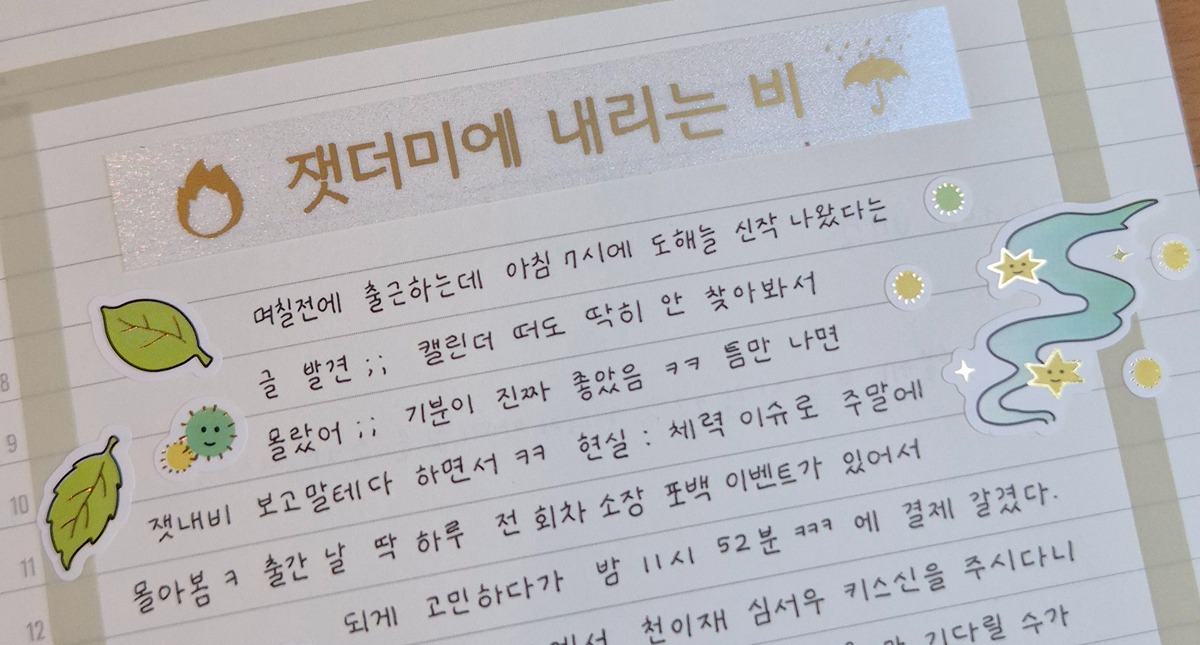 잿더미에 내리는 비
며칠전에 출근하는데 아침 7시에 도해늘 신작 나왔다는
글 발견 ;; 캘린더 떠도 딱히 안 찾아봐서
몰랐어 ;; 기분이 진짜 좋았음 ㅋㅋ 틈만 나면
잿내비 보고말테다 하면서 ㅋㅋ 현실 : 체력 이슈로 주말에
몰아봄 ㅋ 출간 날 딱 하루 전 회차 소장 포백 이벤트가 있어서
되게 고민하다가 밤 11시 52분 ㅋㅋㅋ 에 결제 갈겼다.
천이재 심서우 키스신을 주시다니
기다릴 수가
8
9
10
11
12